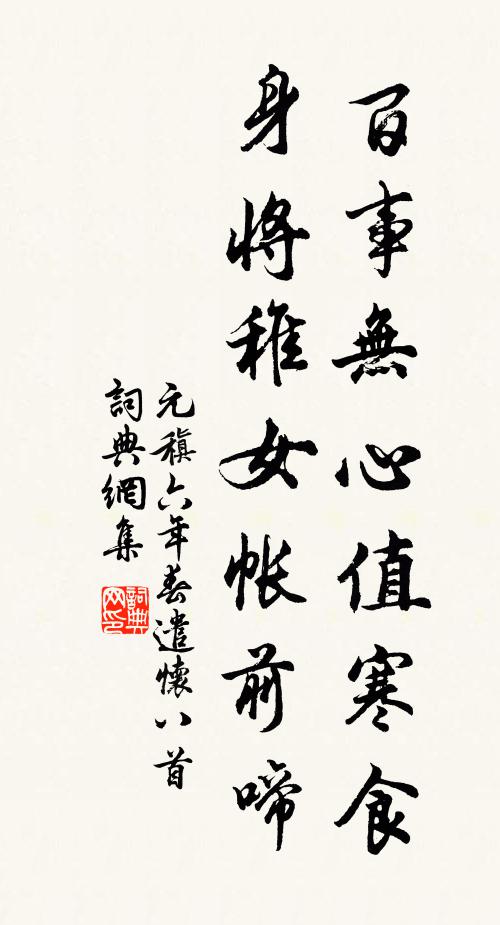 百事無心值寒食
身將稚女帳前啼
元稹六年春遣懷八首
詞典網集
詞典网印